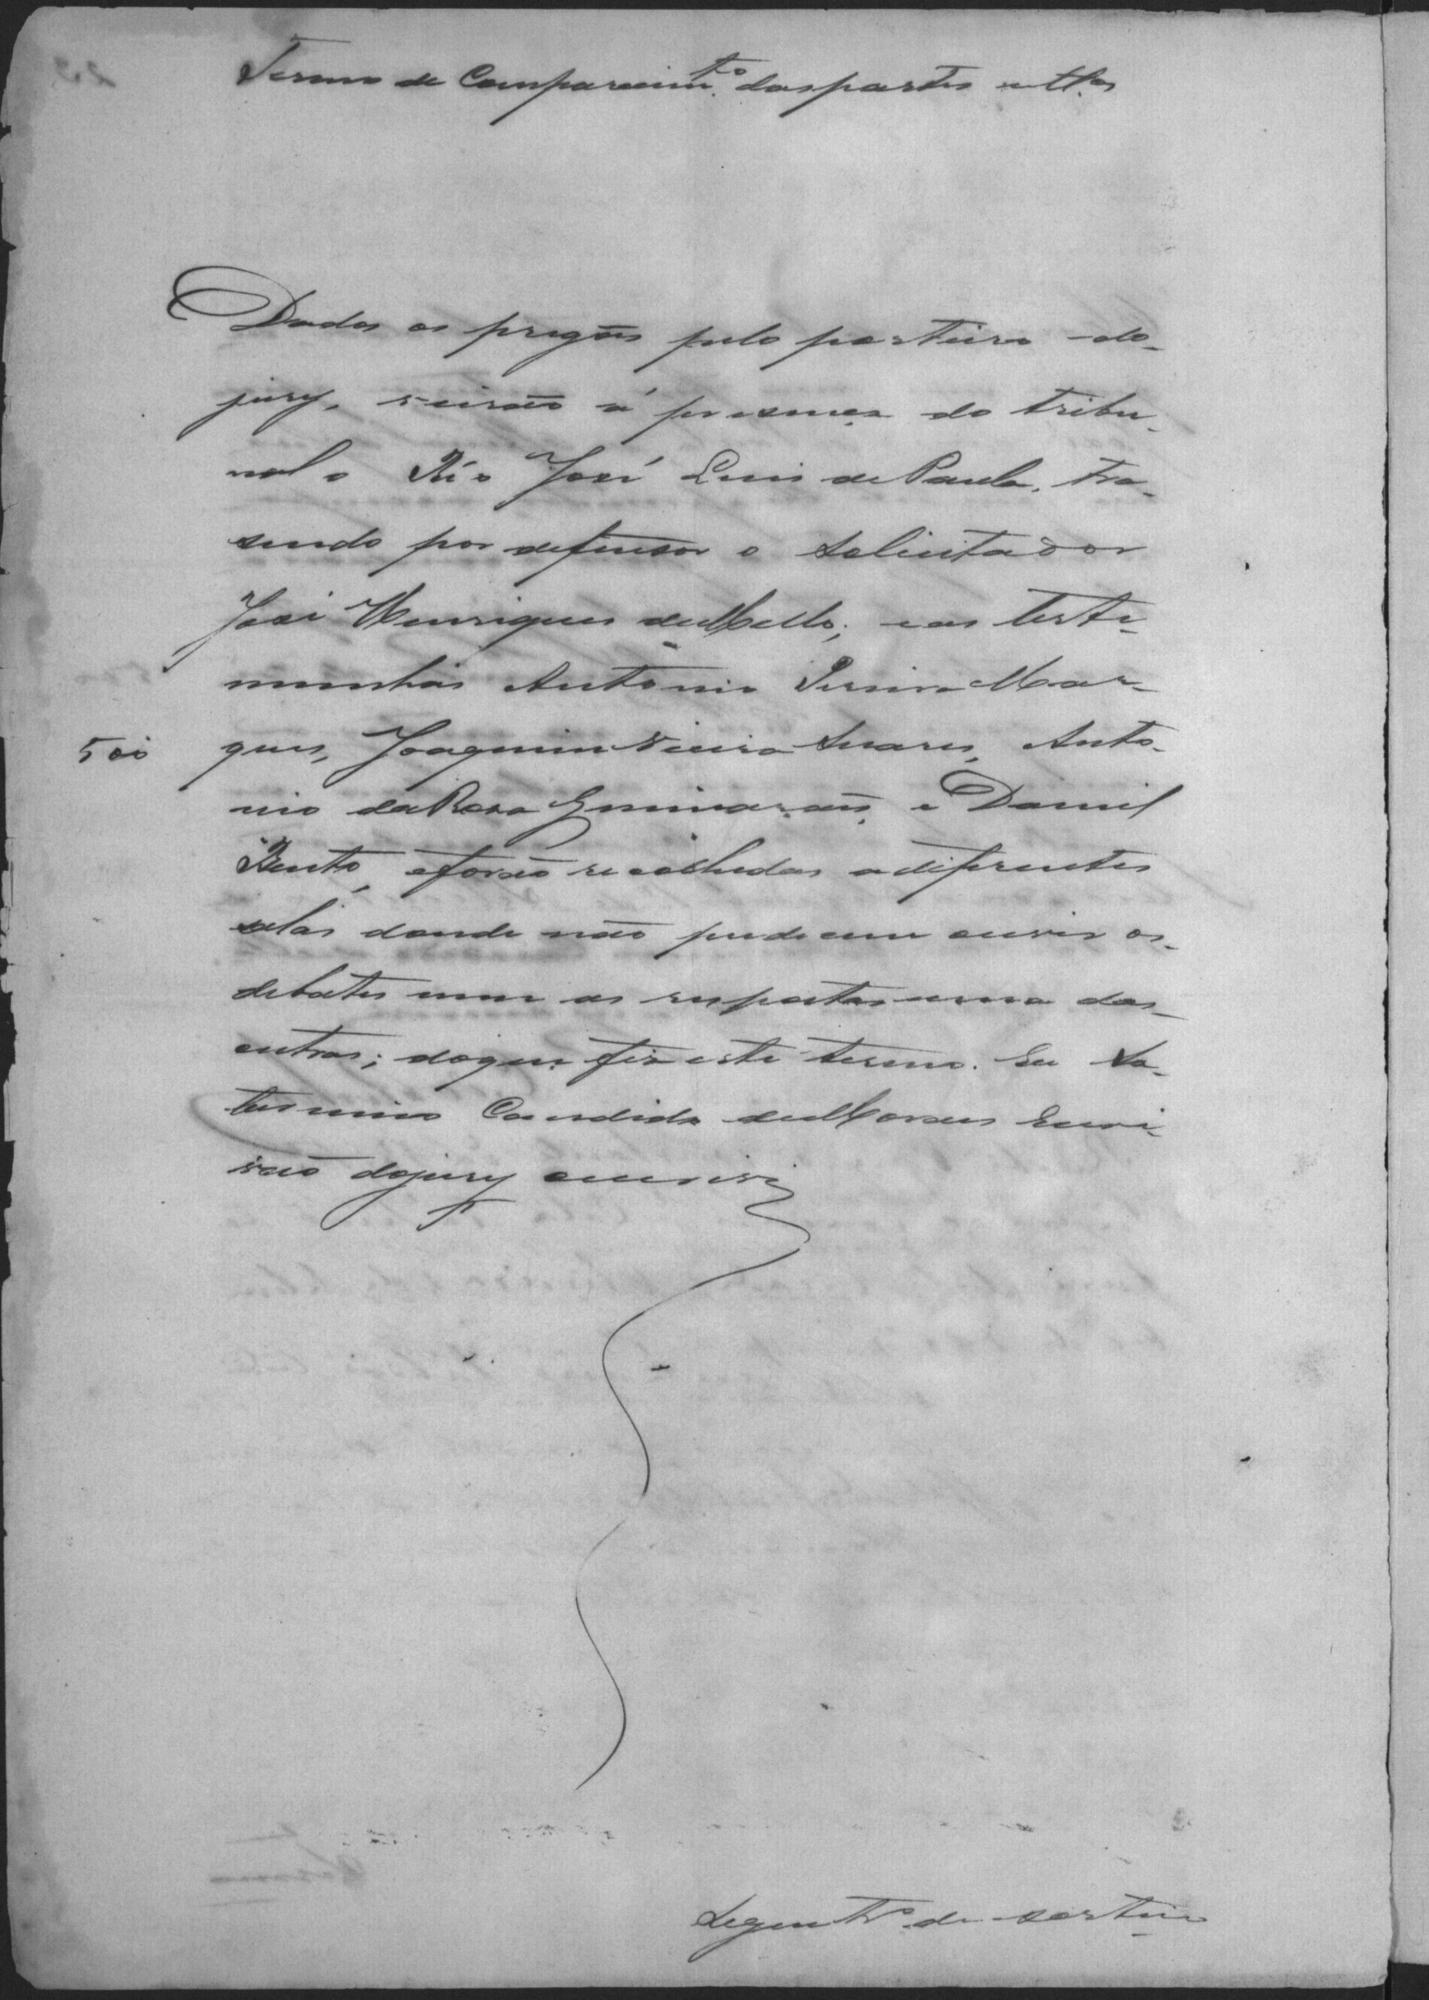 Termo de Comparecim.to das partes e tt.as
Dados os pregões pelo porteiro do-
jury, vierão á presença do tribu-
nal o Réo José Luis de Paula, tra-
sendo por defensor o solicitador
José Henriques de Mello; e as teste-
munhas Antonio Pereira Mar-
500 ques, Joaquim Vieira Soares, Anto-
nio da Rosa Guimarães, e Daniel
Bento, e forão recolhidas a differentes
salas donde não pudecem ouvir os-
debates nem as respostas uma das-
outras; do que fiz este termo. Eu Sa-
turnino Candido de Moraes Escri-
vão do jury escrevi
Segue Tr.º de sorteio